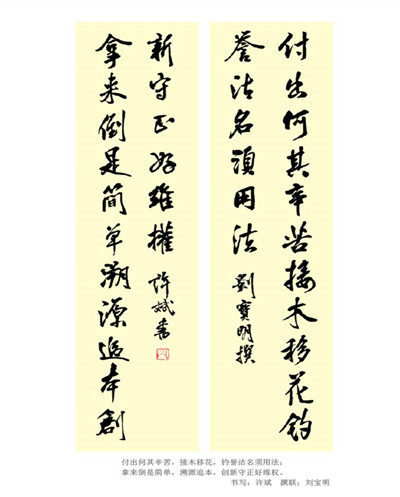 付出何其辛苦接木移花钓
誉沽名须用法 劉寶明撰
拿来倒是简单溯源追本創
新守正好維權 許斌書
付出何其辛苦，接木移花，钓誉沽名须用法；
拿来倒是简单，溯源追本，创新守正好维权。
书写：许斌 撰联：刘宝明